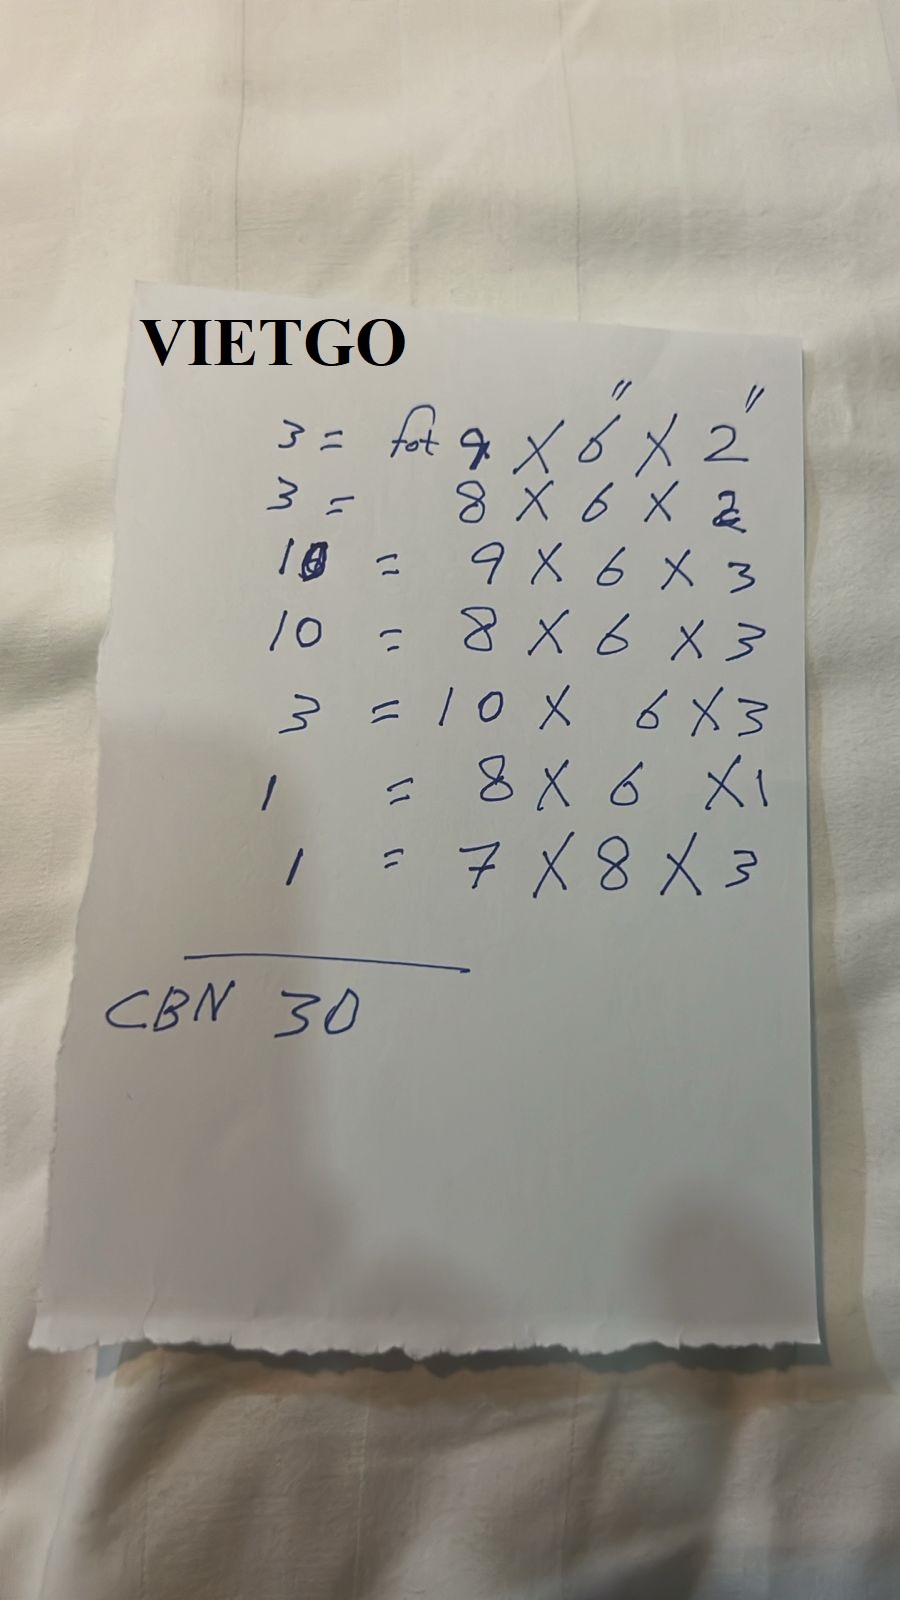 VIETGO
3 = fot 9 X 6" X 2"
3 = 8 X 6 X 2
10 = 9 X 6 X 3
10 = 8 X 6 X 3
3 = 10 X 6 X 3
1 = 8 X 6 X 1
1 = 7 X 8 X 3
CBN 30